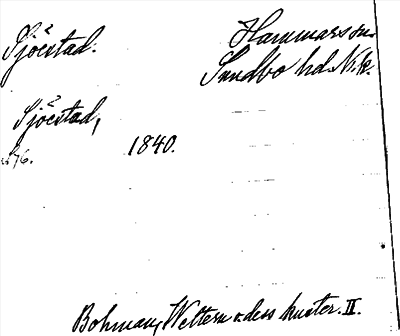 Sjöestad. Hammars sn.
Sundbo hd. Nrk.
Sjöestad,
s. 76. 1840.
Bohman, Wettern o. dess kuster. II.